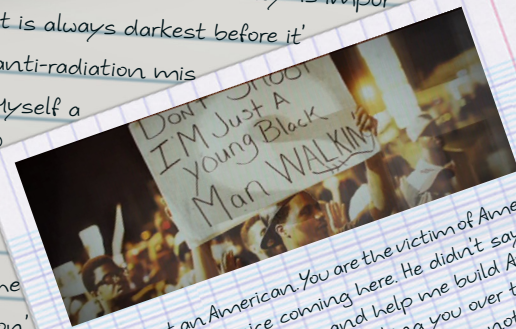 t is always darkest before it'
anti-radiation mis
Myself a
DON'T SHOOT
I'M Just A
young Black
Man WALKIN
an American. You are the victim of Ame
ice coming here. He didn't say
and help me build A
you over t